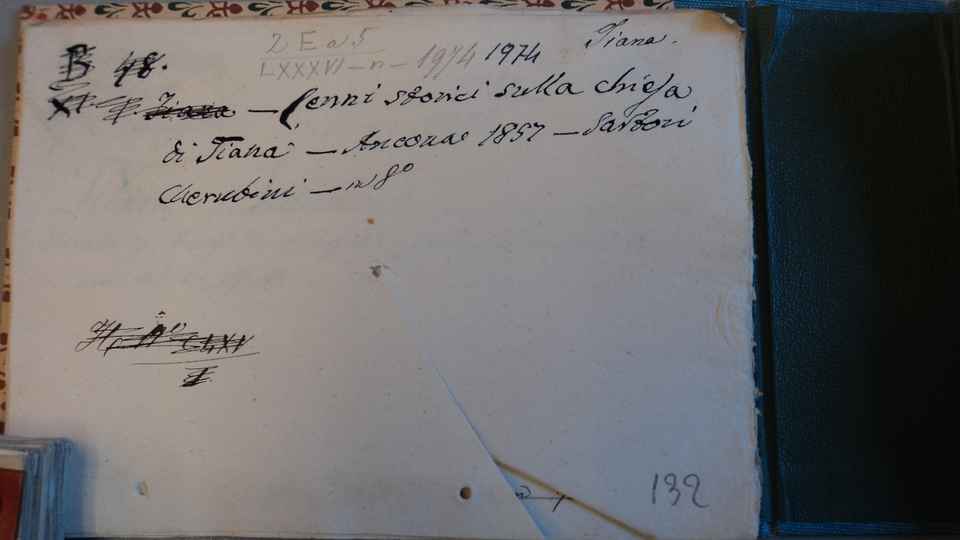 2 E a 5
LXXXVI - n - 1974 1974 Tiana.
B 48.
XI. Tiana — Cenni storici sulla chiesa
di Tiana — Ancona 1857 — Sartori
Cherubini — in 8º
CLXV
I
132